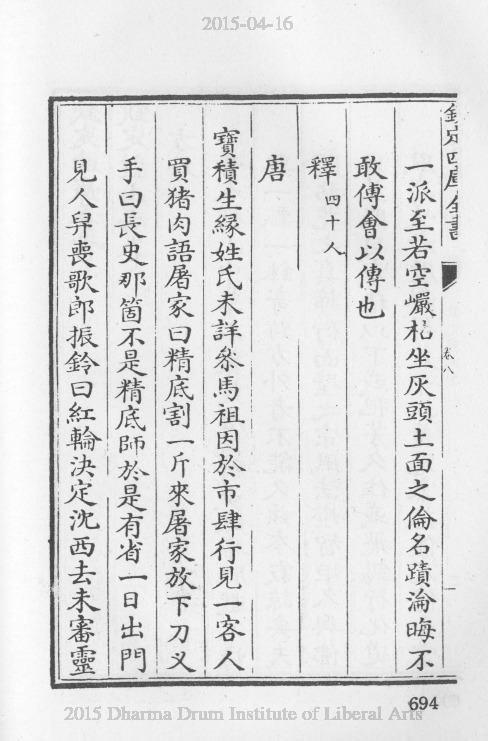 2015-04-16
欽定四庫全書
卷八
一派至若空巖枯坐灰頭土面之倫名蹟淪晦不
敢傅會以傳也
釋四十人
唐
寶積生緣姓氏未詳叅馬祖因於市肆行見一客人
買猪肉語屠家曰精底割一斤來屠家放下刀义
手曰長史那箇不是精底師於是有省一日出門
見人舁喪歌郎振鈴曰紅輪決定沈西去未審靈
694
2015 Dharma Drum Institute of Liberal Arts